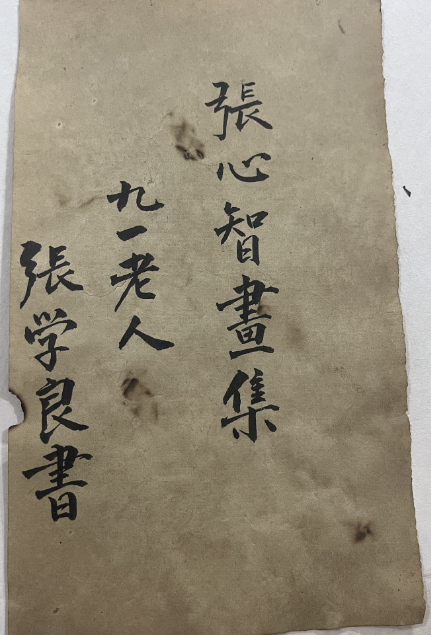 張心智畫集
九一老人
張学良書